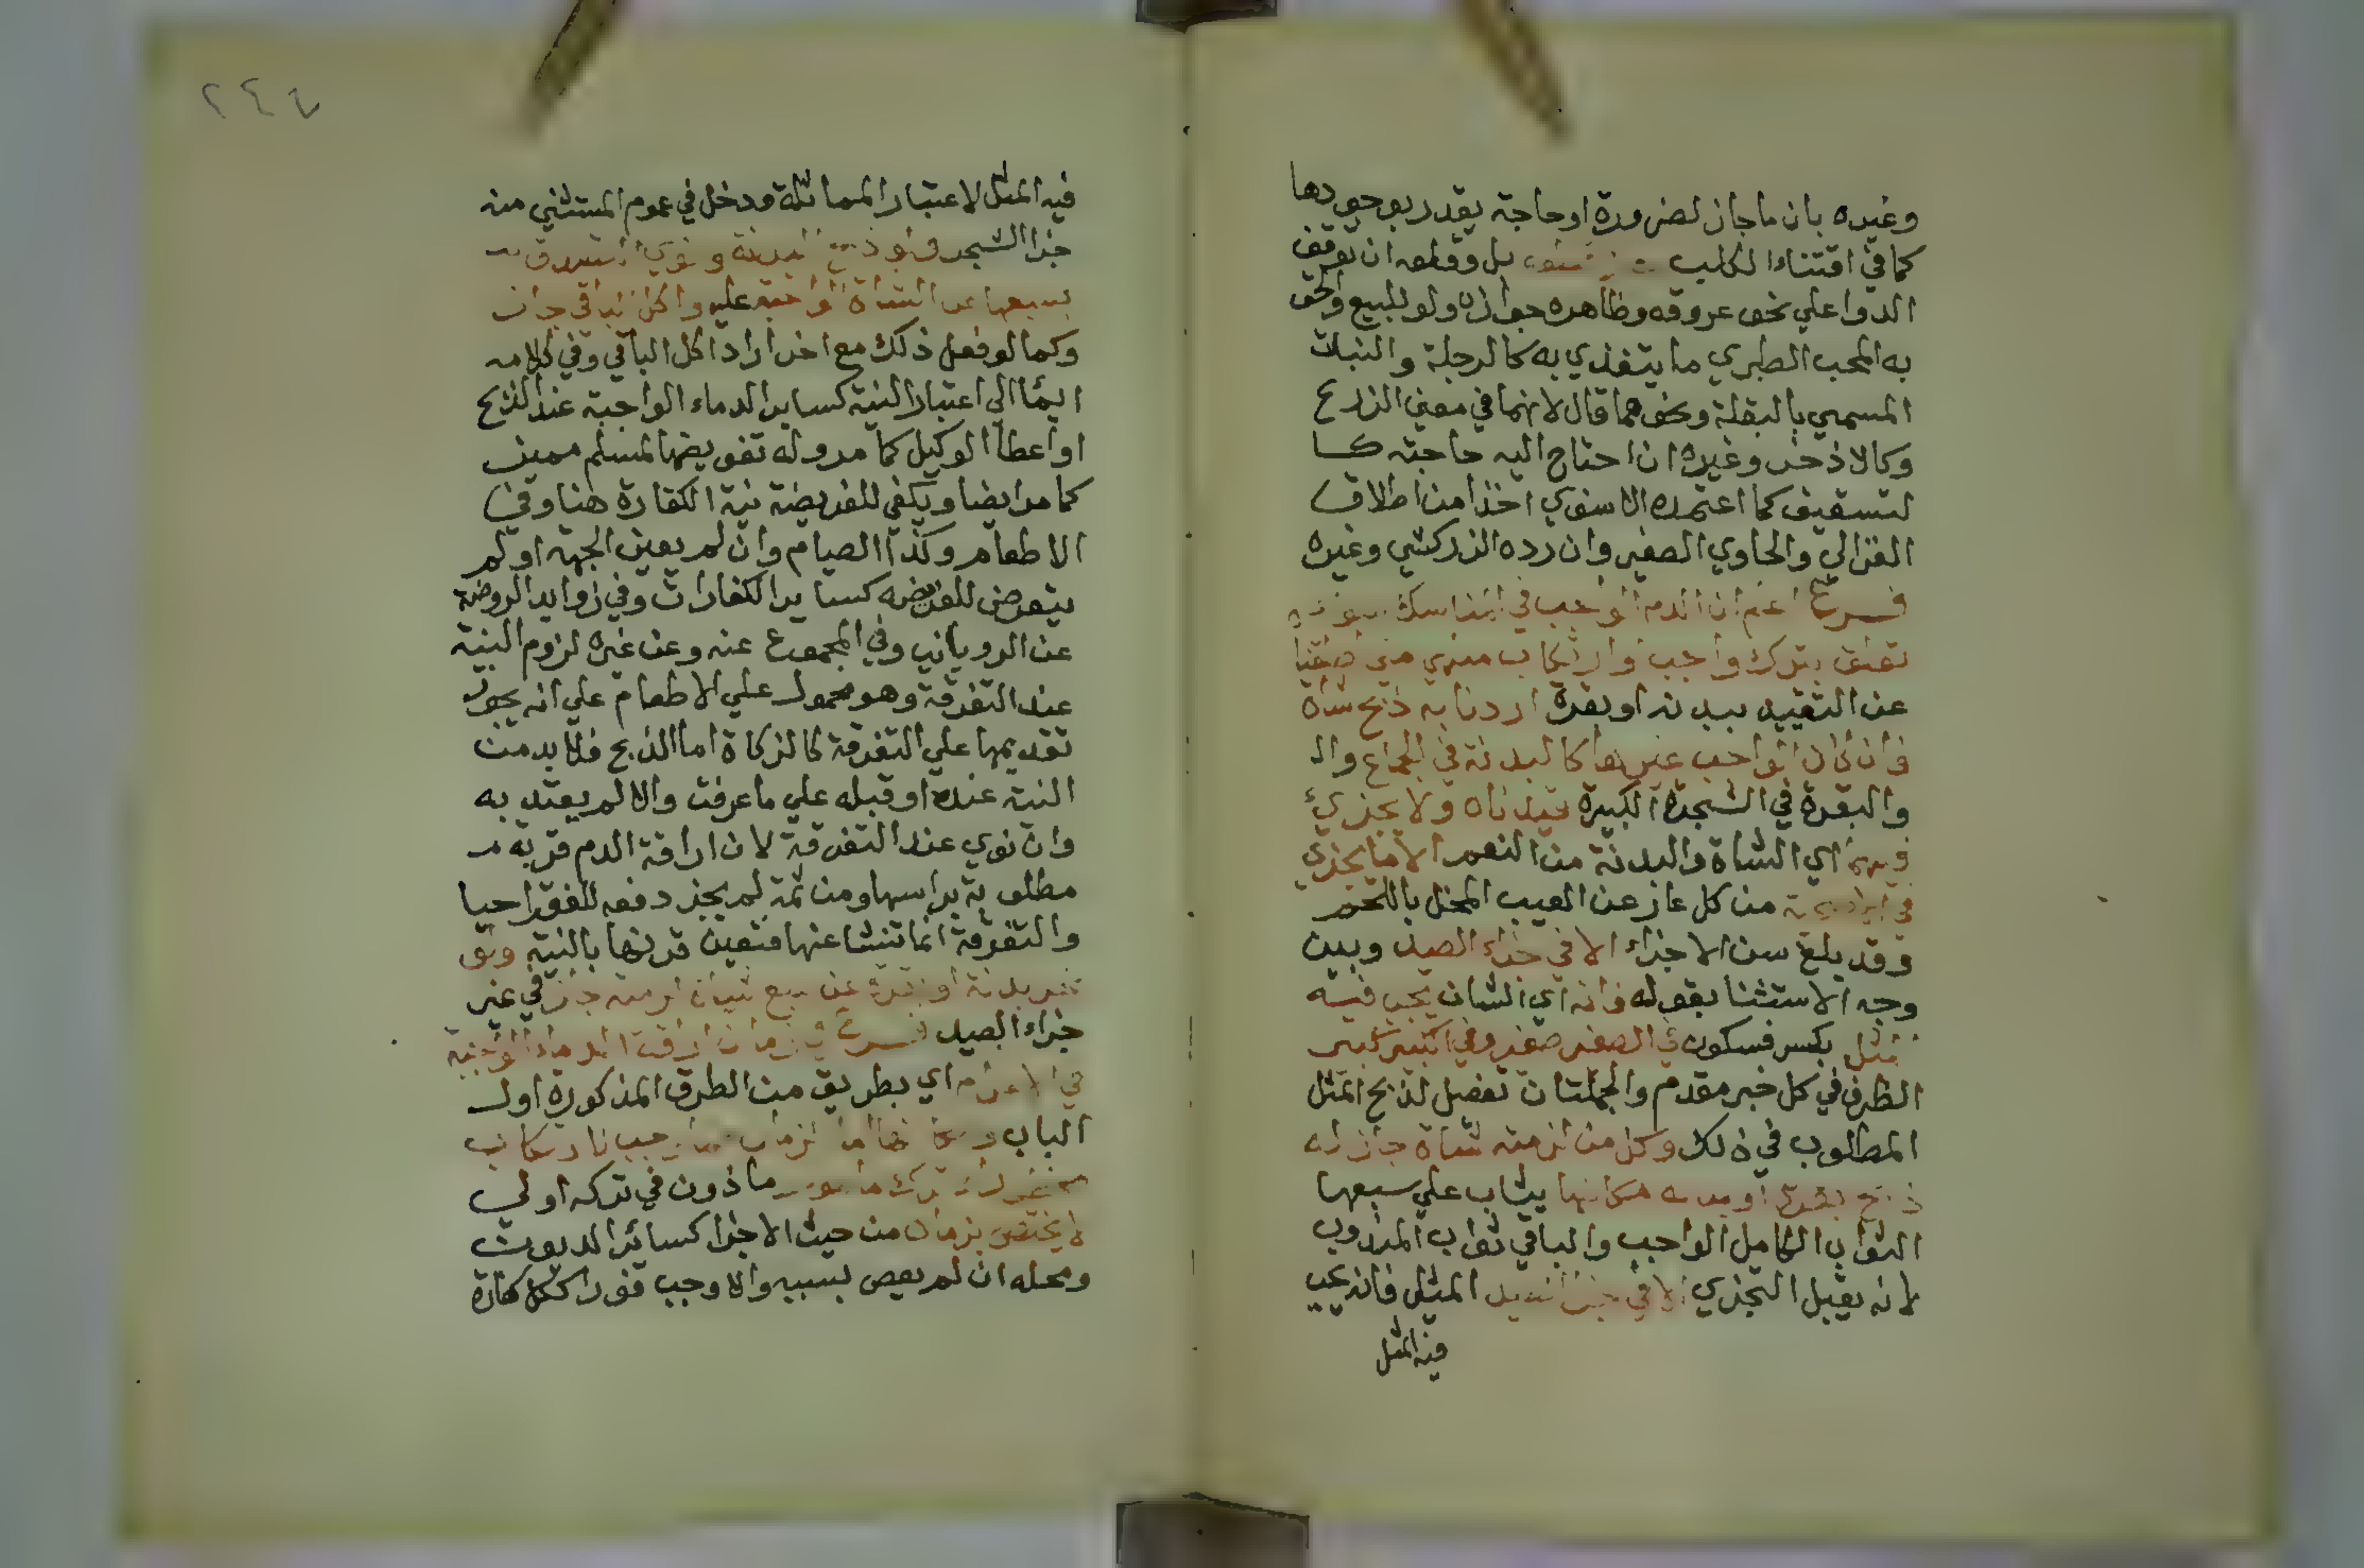 وغيره بان ماجاز لضرورة اوحاجة يقدر بوجودها
كما في اقتناء الكلب بل وقطعه ان توقف
الدوا علي نحو عروقه وظاهره جوازه ولو للبيع والحق
به المحب الطبري ما يتغذي به كالرجلة والنبات
المسمي بالبقلة ونحوهما قال لانهما في معني الزرع
وكالاذخر وغيره ان احتاج اليه حاجته كـا
لتسقيف كما اعتمده الاسنوي اخذا من اطلاق
الغزالي والحاوي الصغير وان رده الزركشي وغيره
فرع اعلم ان الدم الواجب في المناسك
تعلق بترك واجب او ارتكاب منهي متي اطلقنا
عن التقييد ببدنه او بقرة اردنا به ذبح شاة
فان كان الواجب غيرها كالبدنة في الجماع وال
والبقرة في الشجرة الكبيرة قيدناه ولا يجزئ
فيهما اي الشاة والبدنة من النعم الا ما يجزي
في الاضحية من كل عار عن العيب المخل باللحم
وقد بلغ سن الاجزاء الا في جزاء الصيد وبين
وجه الاستثنا بقوله فانه اي الشان يجب فيه
المثل بكسر فسكون في الصغير صغير وفي الكبير كبير
الظرف في كل خبر مقدم والجملتان تفصيل لذبح المثل
المطلوب في ذلك وكل من لزمته شاة جاز له
ذبح بقرة او بدنه مكانها يثاب علي سبعها
الثواب الكامل الواجب والباقي ثواب المندوب
لانه يقبل التجزي الا في جزا الصيد المثلي فانه يجب
فيه المثل
٢٤٧
فيه المثل لاعتبار المماثلة ودخل في عموم المستثني منه
جزا الشجر فلو ذبح البدنة ونوي التصدق
بسبعها عن الشاة الواجبة عليه واكل الباقي جاز
وكما لو فعل ذلك مع اخر اراد اكل الباقي وفي كلامه
ايما الي اعتبار النية كساير الدماء الواجبة عند الذبح
او اعطا الوكيل كما مر وله تفويضها لمسلم مميز
كما مر ايضا ويكفي للفريضة نية الكفارة هنا وفي
الاطعام وكذا الصيام وان لم يعين الجهة او لم
يتعرض للفريضه كساير الكفارات وفي زوايد الروضة
عن الروياني وفي المجموع عنه وعن غيره لزوم النية
عند التفرقة وهو محمول علي الاطعام علي انه يجوز
تقديمها علي التفرقة كالزكاة اما الذبح فلا بد من
النية عنده او قبله علي ما عرفت والا لم يعتد به
وان نوي عند التفرقة لان اراقة الدم قربة
مطلوبة براسها ومن ثمة لم يجز دفعه للفقرا حيا
والتفرقة انما تنشا عنها فتعين قرنها بالنية ولو
نحر بدنة او بقرة عن سبع شياه لزمته جاز في غير
جزاء الصيد فرع في زمان اراقة الدماء الواجبة
في الاحرام اي بطريق من الطرق المذكورة اول
الباب
ماذون في تركه اولي
لا يختص بزمان من حيث الاجزا كسائر الديون
ومحله ان لم يعص بسببه والا وجب فورا ككل كفارة